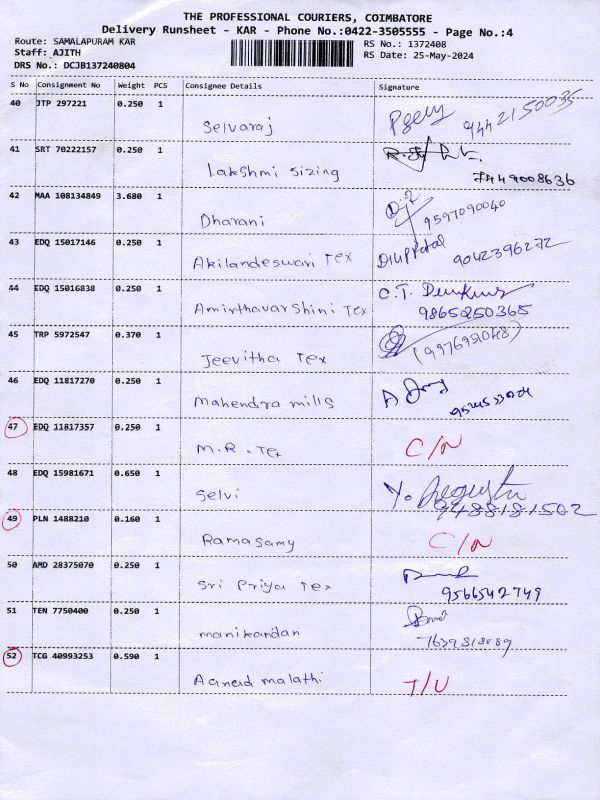 THE PROFESSIONAL COURIERS, COIMBATORE
Delivery Runsheet - KAR - Phone No.:0422-3505555 - Page No.:4
Route: SAMALAPURAM KAR
Staff: AJITH
DRS No.: DCJB137240804
RS No.: 1372408
RS Date: 25-May-2024
S No Consignment No Weight PCS Consignee Details Signature
40 JTP 297221 0.250 1
Selvaraj 9442150035
41 SRT 70222157 0.250 1
Lakshmi sizing 7449008636
42 MAA 108134849 3.680 1
Dharani 9597090040
43 EDQ 15017146 0.250 1
Akilandeswari Tex 9042396272
44 EDQ 15016838 0.250 1 C.T.
Amirthavarshini Tex 9865250365
45 TRP 5972547 0.370 1
Jeevitha Tex
46 EDQ 11817270 0.250 1
Mahendra mills
47 EDQ 11817357 0.250 1
M.R. Tex C/N
48 EDQ 15981671 0.650 1
Selvi 9488181502
49 PLN 1488210 0.160 1
Ramasamy C/N
50 AMD 28375070 0.250 1
Sri Priya Tex 9566542749
51 TEN 7750400 0.250 1
manikandan
52 TCG 40993253 0.590 1
malathi T/U